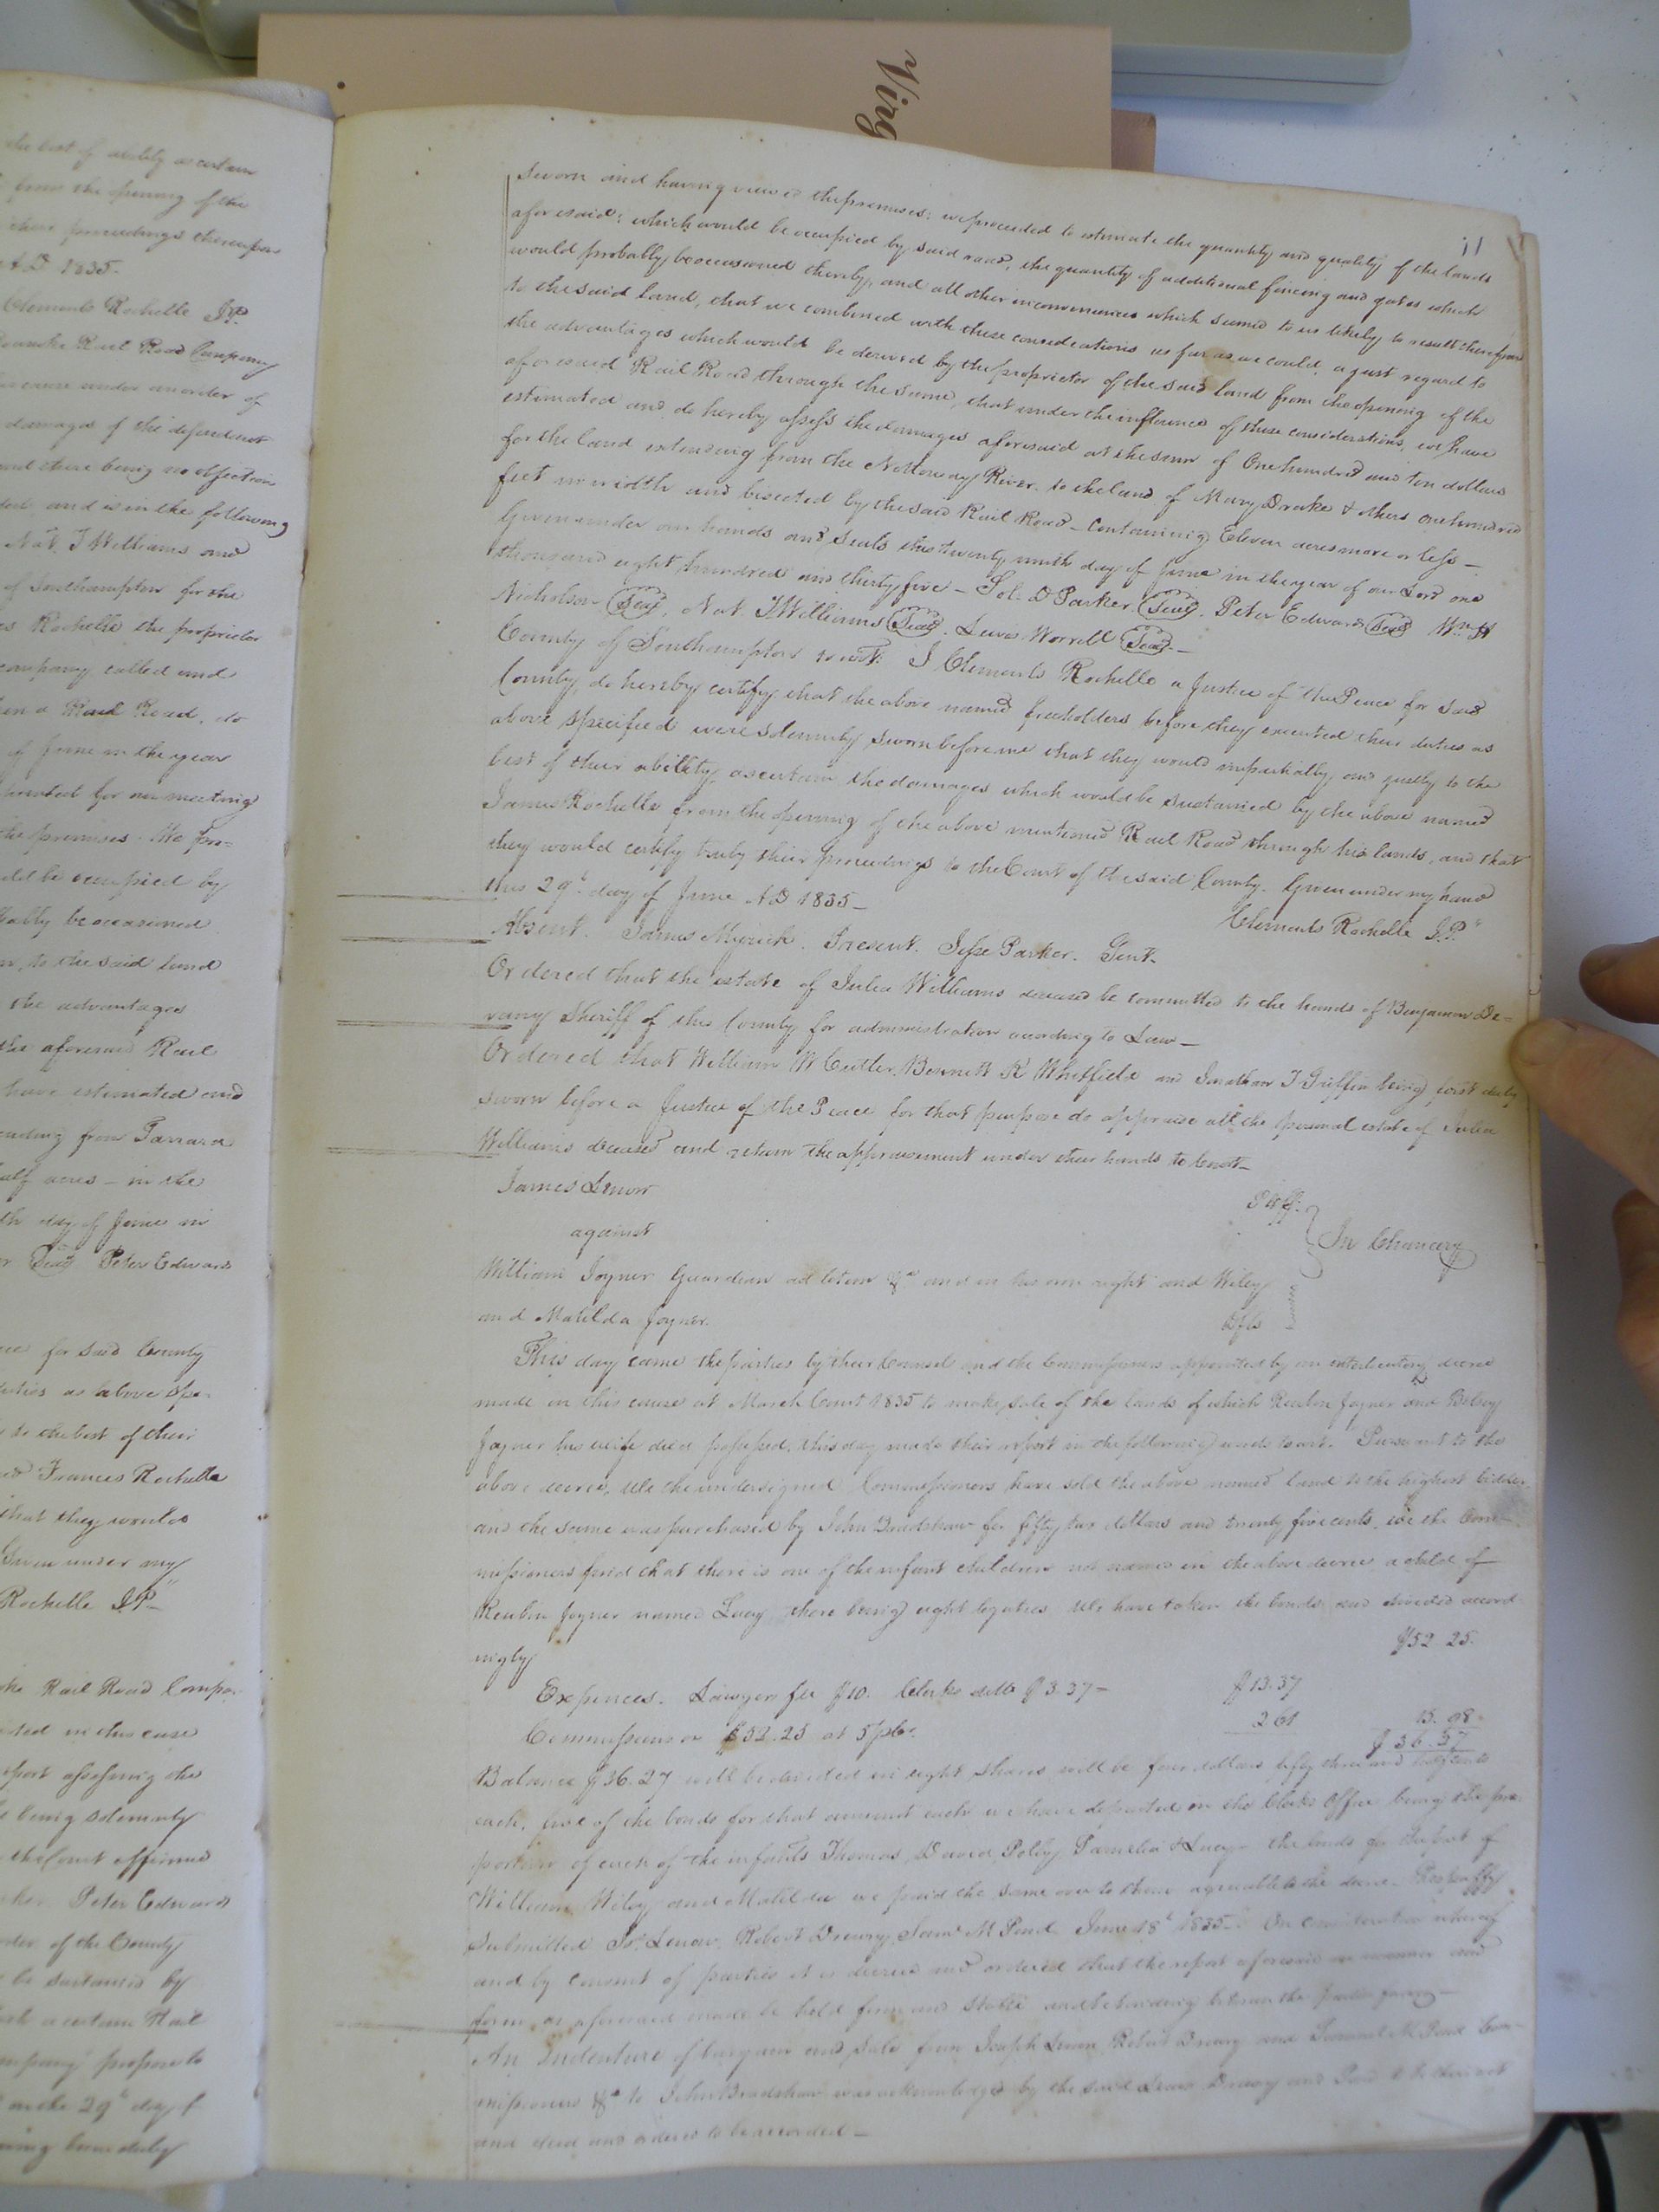 Virg
the best of ability ascertain
from the opening of the
their proceedings thereupon
AD 1835-
Clements Rochelle JP.
Roanoke Rail Road Company
cause under an order of
damages of the defendant
and there being no objection
and is in the following
Nat. T Williams and
of Southampton for the
Rochelle the proprietor
company called and
a Rail Road, do
of June in the year
for our meeting
the premises. We pro=
be occupied by
be occasioned
to the said land
the advantages
the aforesaid Rail
have estimated and
from Tarrara
half acres - in the
day of June in
Seal Peter Edwards
for said County
duties as above spe-
to the best of their
Frances Rochelle
that they would
Given under my
Rochelle JP-
Rail Road Compa-
in this case
report assessing the
being solemnly
the Court affirmed
Peter Edwards
order of the County
be sustained by
a certain Rail
company propose to
on the 29th day of
being been duly
11
sworn and having viewed the premises; we proceeded to estimate the quantity and quality of the lands
aforesaid; which would be occupied by said road, the quantity of additional fencing and gates which
would probably be occasioned thereby, and all other inconveniences which seemed to us likely to result therefrom
to the said land, that we combined with these considerations as far as we could, a just regard to
the advantages which would be derived by the proprietor of the said land from the opening of the
aforesaid Rail Road through the same, that under the influence of these considerations, we have
estimated and do hereby assess the damages aforesaid at the sum of One hundred and ten dollars
for the land extending from the Nottoway River to the land of Mary Drake & others one hundred
feet in width and bisected by the said Rail Road - Containing Eleven acres more or less -
Given under our hands and seals this twenty ninth day of June in the year of our Lord one
thousand eight hundred and thirty five - Sol. D Parker Seal. Peter Edwards Seal Wm H
Nicholson Seal, Nat. T Williams Seal. Lewis Worrell Seal -
County of Southampton to wit: I Clements Rochelle a Justice of the Peace for said
County, do hereby certify that the above named freeholders before they executed their duties as
above specified were solemnly sworn before me that they would impartially and justly to the
best of their ability ascertain the damages which would be sustained by the above named
James Rochelle from the opening of the above mentioned Rail Road through his lands, and that
they would certify truly their proceedings to the Court of the said County. Given under my hand
this 29th day of June AD 1835 -
Clements Rochelle J.P."
Absent. James Myrick. Present. Jesse Parker. Gent.
Ordered that the estate of Julia Williams deceased be committed to the hands of Benjamin De=
vany Sheriff of this County for administration according to Law -
Ordered that William W Cutler, Bennett K Whitfield and Jonathan T Griffin being first duly
sworn before a Justice of the Peace for that purpose do appraise all the personal estate of Julia
Williams deceased and return the appraisement under their hands to Court -
James Lenow
Plff.
against
In Chancery
William Joyner Guardian ad litem &c and in his own right and Wiley
and Matilda Joyner.
Dfts
This day came the parties by their Counsel and the Commissioners appointed by an interlocutory decree
made in this cause at March Court 1835 to make sale of the lands of which Reuben Joyner and Betsey
Joyner his wife died possessed, this day made their report in the following words to wit. Pursuant to the
above decree, We the undersigned Commissioners have sold the above named land to the highest bidder
and the same was purchased by John Bradshaw for fifty two dollars and twenty five cents, we the Com-
missioners find that there is one of the infant children not named in the above decree a child of
Reuben Joyner named Lucy, there being eight legatees We have taken the bonds and divided accord
ingly
$52 25.
Expences. Lawyers fee $10. Clerks ditto $3.37 -
$13.37
Commissions on $52.25 at 5 pCt.
2 61
15. 98
$36.27
Balance $36.27 will be divided in eight shares will be four dollars fifty three and cents
each, five of the bonds for that amount each we have deposited in the Clerks Office being the pro
portion of each of the infants Thomas, David, Polly Pamelia & Lucy - the bonds of
William Wiley and Matilda we paid the same over to them agreeable to the decree. Respectfy
Submitted Jos. Lenow. Robert Drewry, Saml M Pond. June 18th 1835 - On consideration whereof
and by consent of parties it is decreed and ordered that the report aforesaid in manner and
form as aforesaid made be held firm and stable and be binding between the parties
An Indenture of bargain and sale from Joseph Lenow Robert Drewry and Samuel M Pond Com-
missioners &c to John Bradshaw was acknowledged by the said Lenow Drewry and Pond to be their act
and deed and ordered to be recorded -